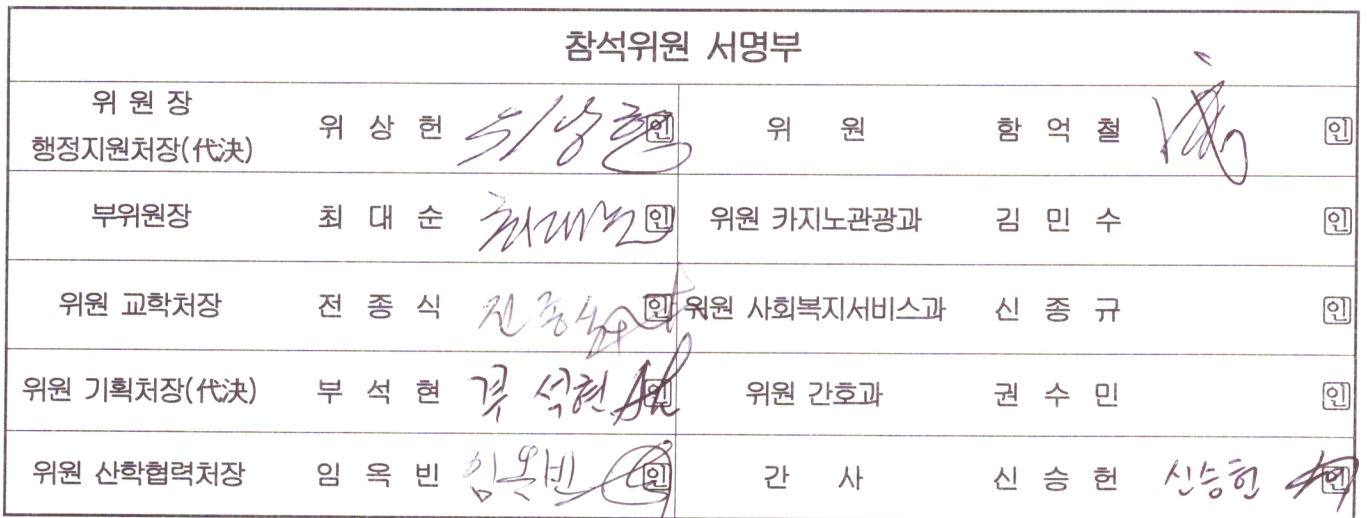 참석위원 서명부
위 원 장
행정지원처장(代決) 위 상 헌 위상헌 인 위 원 함 억 철 인
부위원장 최 대 순 최대순 인 위원 카지노관광과 김 민 수 인
위원 교학처장 전 종 식 전종식 인 위원 사회복지서비스과 신 종 규 인
위원 기획처장(代決) 부 석 현 부석현 인 위원 간호과 권 수 민 인
위원 산학협력처장 임 옥 빈 임옥빈 인 간 사 신 승 헌 신승헌 인